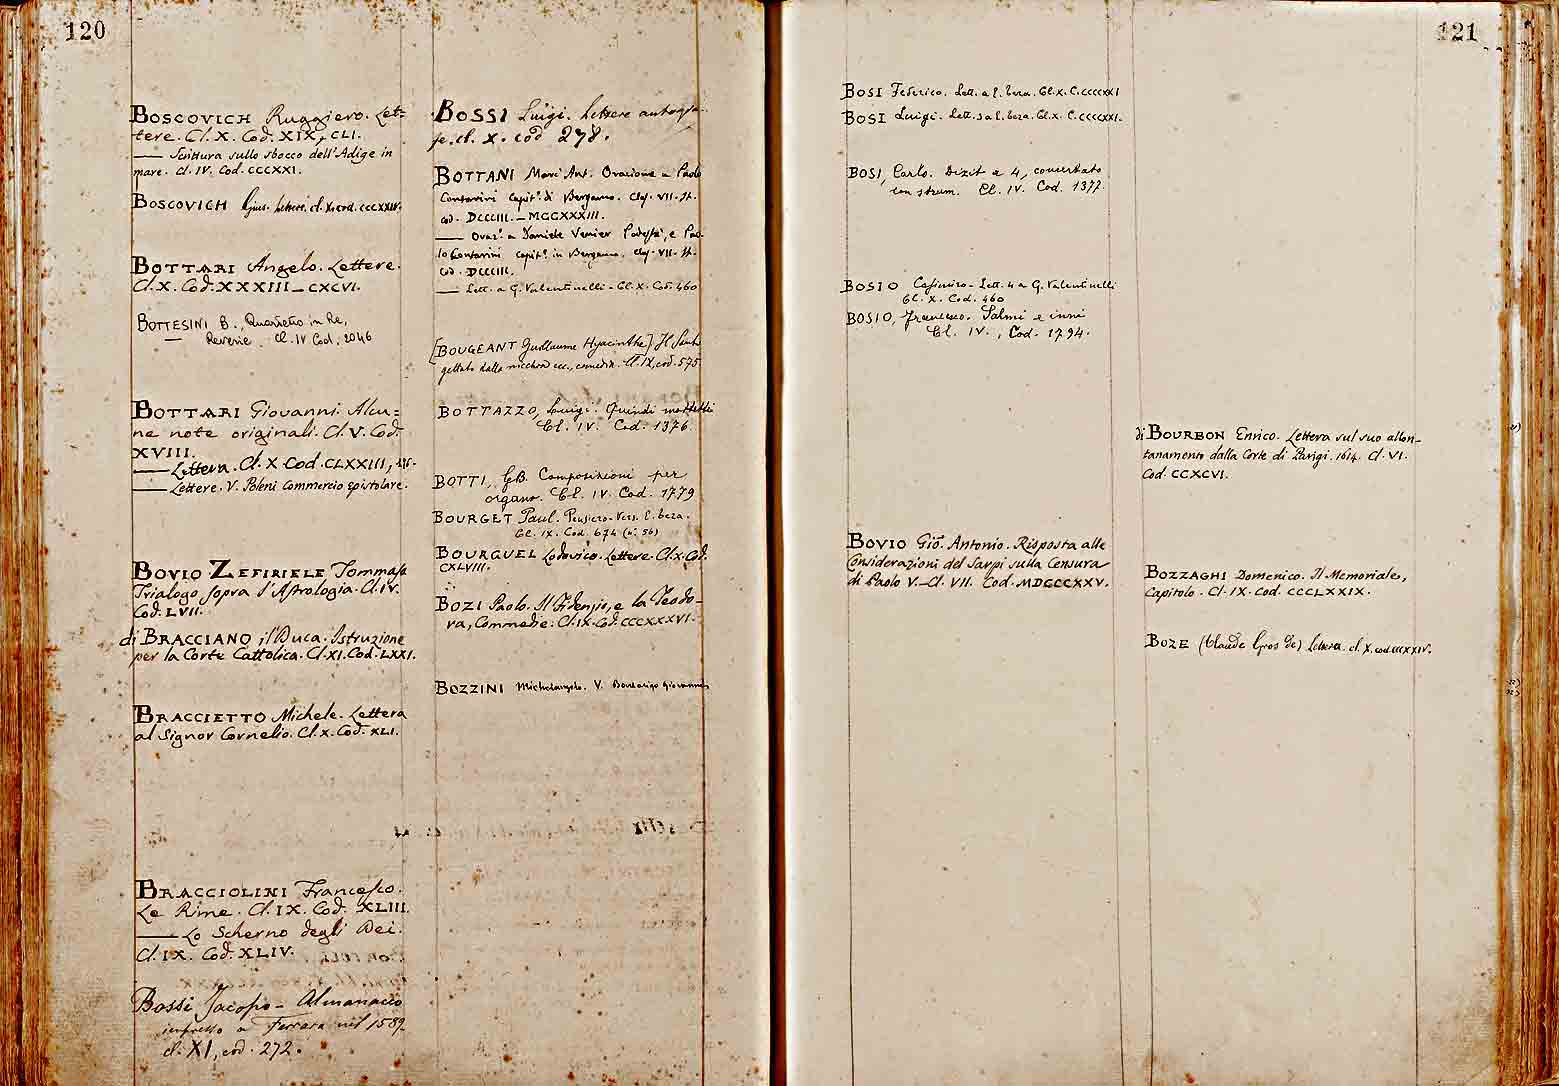 120
BOSCOVICH Ruggiero. Let=
tere. Cl. X. Cod. XIX, CLI.
—— Scrittura sullo sbocco dell'Adige in
mare. Cl. IV. Cod. CCCXXI.
BOSCOVICH Gius. Lettere. cl. X. cod. CCCXXIV.
BOTTARI Angelo. Lettere.
Cl. X. Cod. XXXIII–CXCVI.
BOTTESINI B., Quartetto in Re,
— Reverie. Cl. IV Cod. 2046
BOTTARI Giovanni. Alcu=
ne note originali. Cl. V. Cod.
XVIII.
—— Lettera. Cl. X. Cod. CLXXIII,
—— Lettere. V. Poleni Commercio epistolare.
BOVIO ZEFIRIELE Tommaso
Trialogo sopra l'Astrologia. Cl. IV.
Cod. LVII.
di BRACCIANO, il Duca. Istruzione
per la Corte Cattolica. Cl. XI. Cod. LXXI.
BRACCIETTO Michele. Lettera
al Signor Cornelio. Cl. X. Cod. XLI.
BRACCIOLINI Francesco.
Le Rime. Cl. IX. Cod. XLIII.
—— Lo Scherno degli Dei.
Cl. IX. Cod. XLIV.
Bossi Jacopo – Almanacco
impresso a Ferrara nel 1589
cl. XI, cod. 272.
BOSSI Luigi. Lettere autogra-
fe. cl. X. cod 278.
BOTTANI Marc' Ant. Orazione a Paolo
Contarini Capit.º di Bergamo. Clas. VII. It.
cod. DCCCIII. – MCCXXXIII.
—— Oraz.e a Daniele Venier Podestà, e Pao-
lo Contarini Capit.º in Bergamo. Clas. VII. It.
Cod. DCCCIII.
—— Lett. a G. Valentinelli – Cl. X. Cod. 460
[BOUGEANT Guillaume Hyacinthe] Il Santo
gettato dalla nicchia ecc., comedia. Cl. IX, cod. 575
BOTTAZZO, Luigi. Quindi mottetti
Cl. IV. Cod. 1376
BOTTI, GB. Composizioni per
organo. Cl. IV. Cod. 1779
BOURGET Paul. Pensiero. Vers. L. Beza.
Cl. IX. Cod. 674 (n. 56)
BOURGUEL Lodovico. Lettere. Cl. X. Cod.
CXLVIII.
BOZI Paolo. Il Fidenzio, e la Teodo-
ra, Commedie. Cl. IX. Cod. CCCXXXVI.
BOZZINI Michelangelo. V. Giovanni
121
BOSI Federico. Lett. a L. Beza. Cl. X. C. CCCCXXI
BOSI Luigi. Lett. 3 a L. Beza. Cl. X. C. CCCCXXI.
BOSI, Carlo. Dixit a 4, concertato
con strum. Cl. IV. Cod. 1377.
BOSIO Casimiro – Lett. 4 a G. Valentinelli
Cl. X. Cod. 460
BOSIO, Francesco. Salmi e inni
Cl. IV., Cod. 1794.
BOVIO Gio. Antonio. Risposta alle
Considerazioni del Sarpi sulla Censura
di Paolo V. – Cl. VII. Cod. MDCCCXXV.
di BOURBON Enrico. Lettera sul suo allon-
tanamento dalla Corte di Parigi. 1614. Cl. VI.
Cod. CCXCVI.
BOZZAGHI Domenico. Il Memoriale,
Capitolo. Cl. IX. Cod. CCCLXXIX.
BOZE (Claude Gros de) Lettera. cl. X. cod. CCCXXIV.